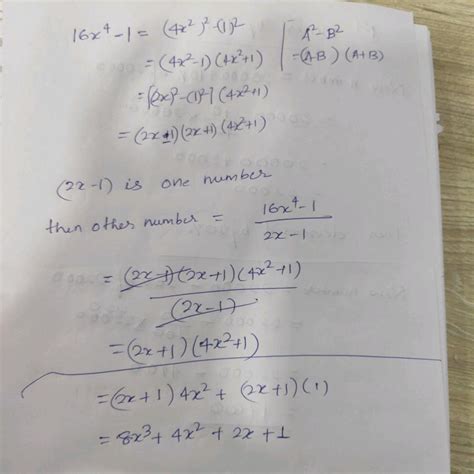 16x⁴-1 = (4x²)²-(1)²
A²-B²
= (4x²-1)(4x²+1)
=(A-B)(A+B)
=[(2x)²-(1)²](4x²+1)
= (2x-1)(2x+1)(4x²+1)
(2x-1) is one number
then other number = 16x⁴-1 / 2x-1
= (2x-1)(2x+1)(4x²+1) / (2x-1)
=(2x+1)(4x²+1)
=(2x+1)4x² + (2x+1)(1)
= 8x³+4x²+2x+1